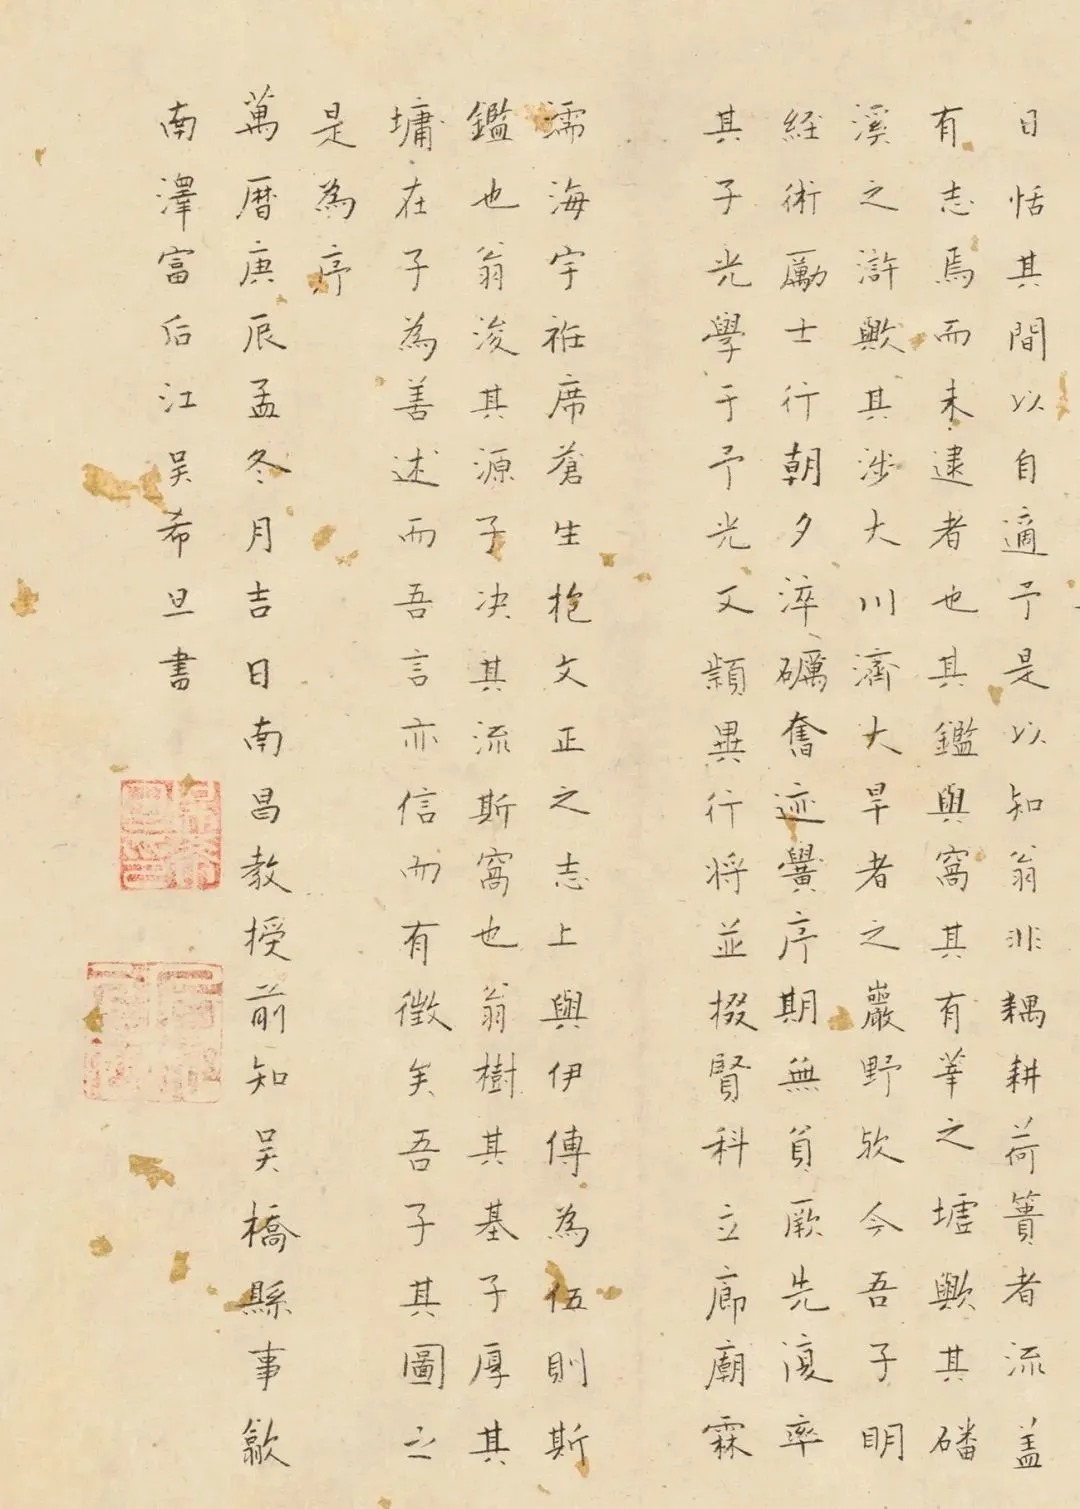 日恬其間以自適予是以知翁非耦耕荷蕢者流盖
有志焉而未逮者也其鑑與窩其有莘之墟歟其磻
溪之滸歟其涉大川濟大旱者之巖野歟今吾子明
経術厲士行朝夕淬礪奮迹黌序期無負厥先復率
其子光學于予光又穎異行将並掇賢科立廊廟霖
濡海宇袵席蒼生抱文正之志上與伊傅為伍則斯
鑑也翁浚其源子决其流斯窩也翁樹其基子厚其
墉在子為善述而吾言亦信而有徴矣吾子其圖之
是為序
萬曆庚辰孟冬月吉日南昌教授前知吴橋縣事歙
南澤富后江吴希旦書